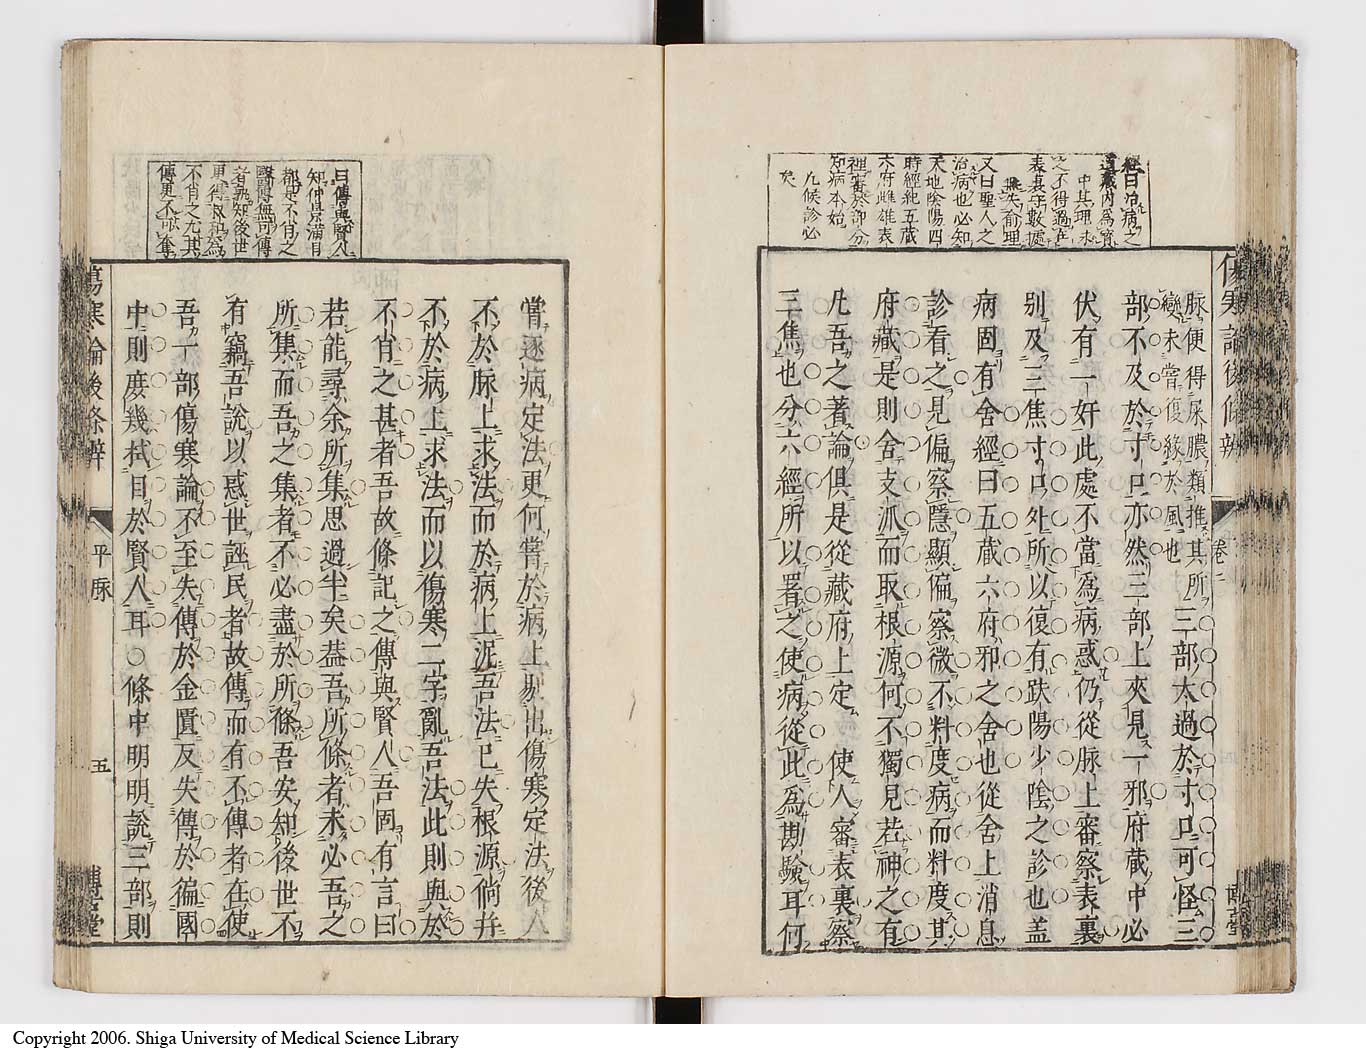 傷寒論後條辨
卷二
博古堂
經曰治病之
道藏內爲寶
之不得過在
表裏守數處
無失兪理
又曰聖人之
治病也必知
天地陰陽四
時經紀五藏
六府雌雄表
知病本始
九候診必
矣
脉便得尿膿類推其所
變未嘗復緣於風也
三部太過於寸口可怪三
部不及於寸口亦然三部上夾見一邪府藏中必
伏有一奸此處不當爲病惑仍從脉上審察表裏
別及三焦寸口外所以復有趺陽少陰之診也蓋
病固有舍經曰五藏六府邪之舍也從舍上消息
診看之見偏察隱顯偏察微不料度病而料度其
府藏是則舍支派而取根源何不獨見若神之有
凡吾之著論俱是從藏府上定 使人審表裏察
三焦也分六經所以署之使病從此爲勘驗耳何
曰傳與賢人
知仲景滿目
都是不肖之
醫傳無可傳
者孰知後世
不肖之尤其
嘗逐病定法更何嘗於病上剔出傷寒定法後人
不於脉上求法而於病上泥吾法已失根源倘幷
不於病上求法而以傷寒二字亂吾法此則與於
不肖之甚者吾故條記之傳與賢人吾固有言曰
若能尋余所集思過半矣葢吾所條者未必吾之
所集而吾之集者不必盡於所條吾安知後世不
有竊吾說以惑世誣民者故傳而有不傳者在使
吾一部傷寒論不至失傳於金匱反失傳於徧國
中則庶幾拭目於賢人耳○條中明明說三部則
傷寒論後條辨
平脉
五
博古堂
Copyright 2006. Shiga University of Medical Science Library